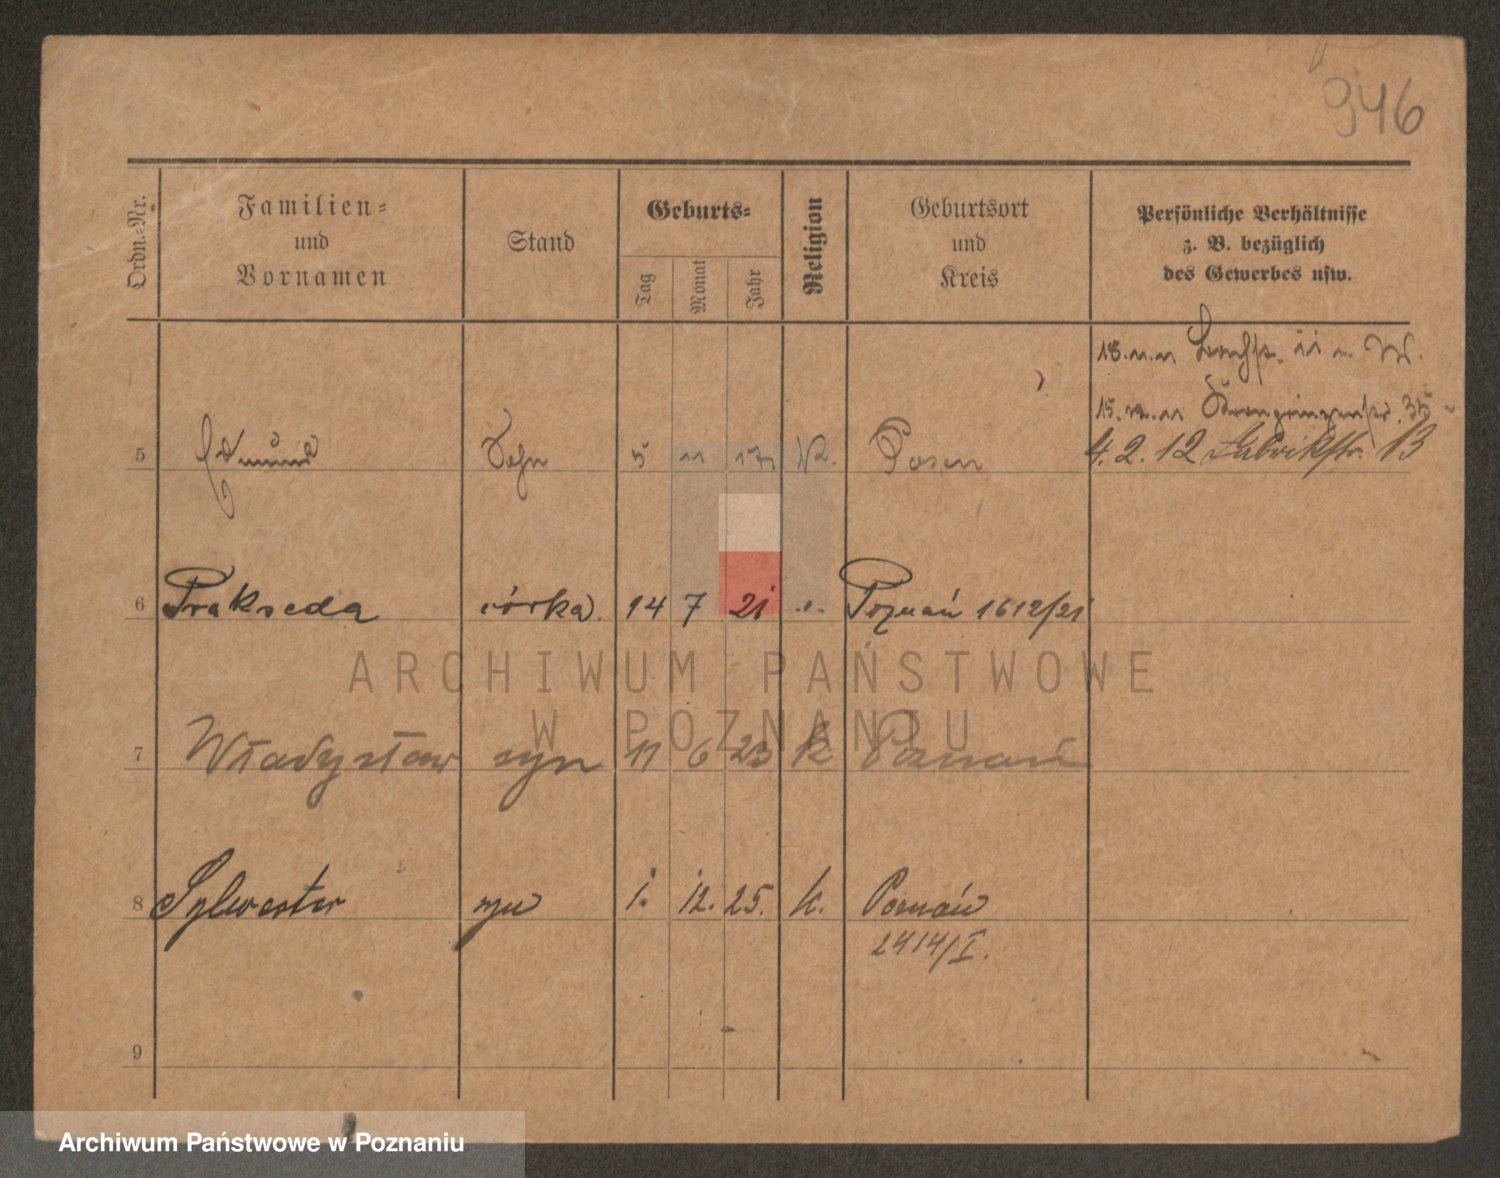 946
Ordn.-Nr.
Familien-
und
Vornamen
Stand
Geburts-
Tag
Monat
Jahr
Religion
Geburtsort
und
Kreis
Persönliche Verhältnisse
z. B. bezüglich
des Gewerbes usw.
18.
15. Kronprinzenstr. 35
4. 2. 12 Fabrikstr. 13
5 Edmund Sohn 5 11 K. Posen
6 Prakseda córka. 14 7 21 Poznań 1612/21
ARCHIWUM PAŃSTWOWE
W POZNANIU
7 Władysław syn 11 6 23 k Poznań
8 Sylwester syn 1. 12. 25. k. Poznań
2414/I.
9
Archiwum Państwowe w Poznaniu